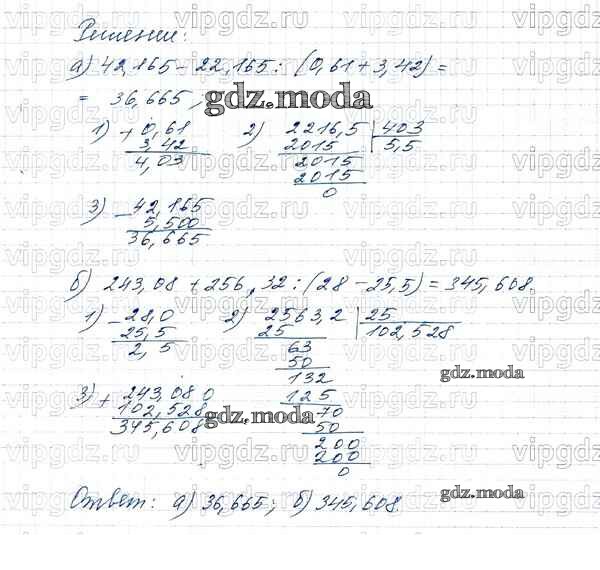 Решение:
а) 42,165 - 22,165 : (0,61 + 3,42) =
= 36,665,
1) + 0,61
3,42
4,03
2) 2216,5 | 403
2015 5,5
2015
2015
0
3) - 42,165
5,500
36,665
б) 243,08 + 256,32 : (28 - 25,5) = 345,608.
1) - 28,0
25,5
2,5
2) 2563,2 | 25
25 102,528
63
50
132
125
70
50
200
200
0
3) + 243,080
102,528
345,608
Ответ: а) 36,665; б) 345,608.
gdz.moda
gdz.moda
gdz.moda
gdz.moda
vipgdz.ru